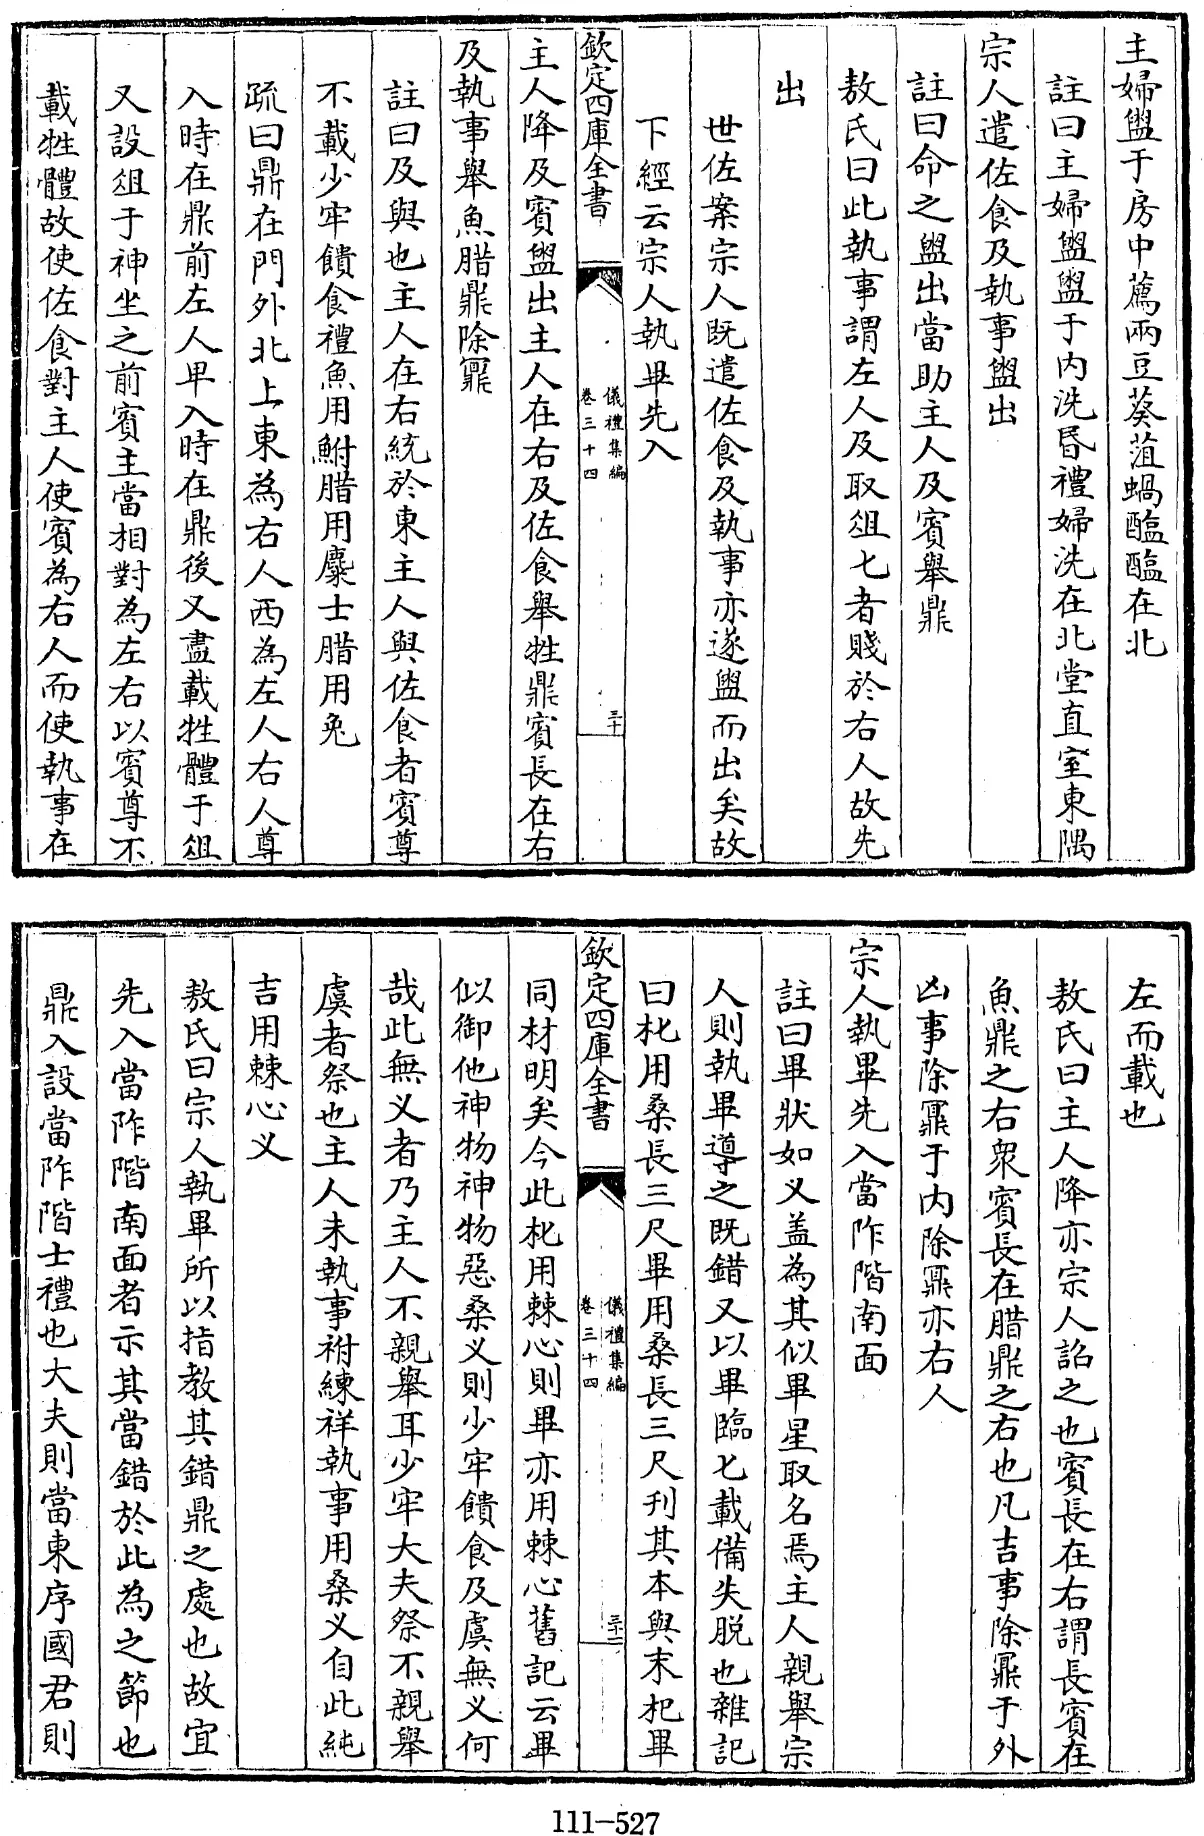 主婦盥于房中薦兩豆葵菹蝸醢醢在北
註曰主婦盥盥于内洗昏禮婦洗在北堂直室東隅
宗人遣佐食及執事盥出
註曰命之盥出當助主人及賓舉鼎
敖氏曰此執事謂左人及取俎匕者賤於右人故先
出
世佐案宗人既遣佐食及執事亦遂盥而出矣故
下經云宗人執畢先入
欽定四庫全書
儀禮集編
卷三十四
三十
主人降及賓盥出主人在右及佐食舉牲鼎賓長在右
及執事舉魚腊鼎除鼏
註曰及與也主人在右統於東主人與佐食者賓尊
不載少牢饋食禮魚用鮒腊用麋士腊用兔
疏曰鼎在門外北上東為右人西為左人右人尊
入時在鼎前左人卑入時在鼎後又盡載牲體于俎
又設俎于神坐之前賓主當相對為左右以賓尊不
載牲體故使佐食對主人使賓為右人而使執事在
左而載也
敖氏曰主人降亦宗人詔之也賓長在右謂長賓在
魚鼎之右衆賓長在腊鼎之右也凡吉事除鼏于外
凶事除鼏于内除鼏亦右人
宗人執畢先入當阼階南面
註曰畢狀如叉盖為其似畢星取名焉主人親舉宗
人則執畢導之既錯又以畢臨匕載備失脱也雜記
曰朼用桑長三尺畢用桑長三尺刋其本與末杷畢
欽定四庫全書
儀禮集編
卷三十四
三十一
同材明矣今此朼用棘心則畢亦用棘心舊記云畢
似御他神物神物惡桑叉則少牢饋食及虞無叉何
哉此無叉者乃主人不親舉耳少牢大夫祭不親舉
虞者祭也主人未執事祔練祥執事用桑叉自此純
吉用棘心叉
敖氏曰宗人執畢所以指教其錯鼎之處也故宜
先入當阼階南面者示其當錯於此為之節也
鼎入設當阼階士禮也大夫則當東序國君則
111-527